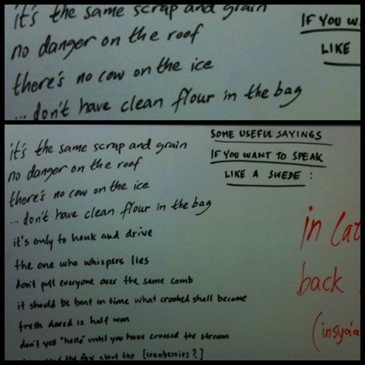 it's the same scrap and grain
no danger on the roof
there's no cow on the ice
... don't have clean flour in the bag
IF YOU W
LIKE
SOME USEFUL SAYINGS
IF YOU WANT TO SPEAK
LIKE A SWEDE :
it's the same scrap and grain
no danger on the roof
there's no cow on the ice
... don't have clean flour in the bag
it's only to honk and drive
the one who whispers lies
don't pull everyone over the same comb
it should be bent in time what crooked shall become
fresh dared is half won
don't yell "hello" until you have crossed the stream
the fox about the [cranberries?]
in
back
(insjöa